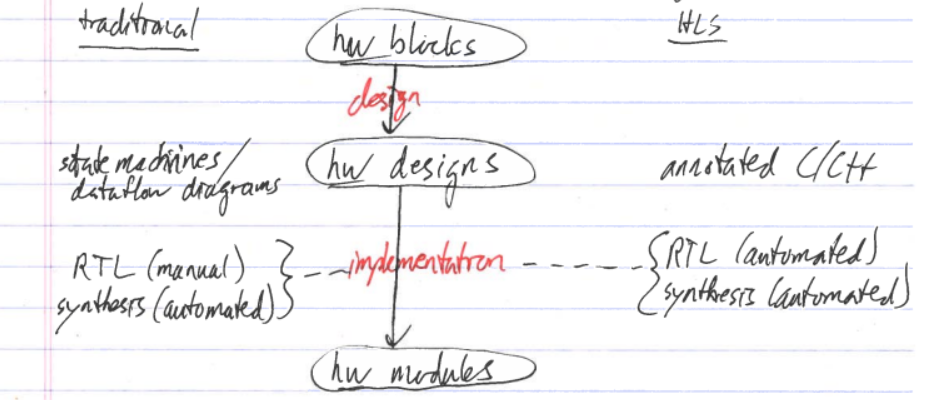 traditional
hw blocks
HLS
design
state machines/
dataflow diagrams
hw designs
annotated C/C++
RTL (manual)
synthesis (automated)
implementation
RTL (automated)
synthesis (automated)
hw modules